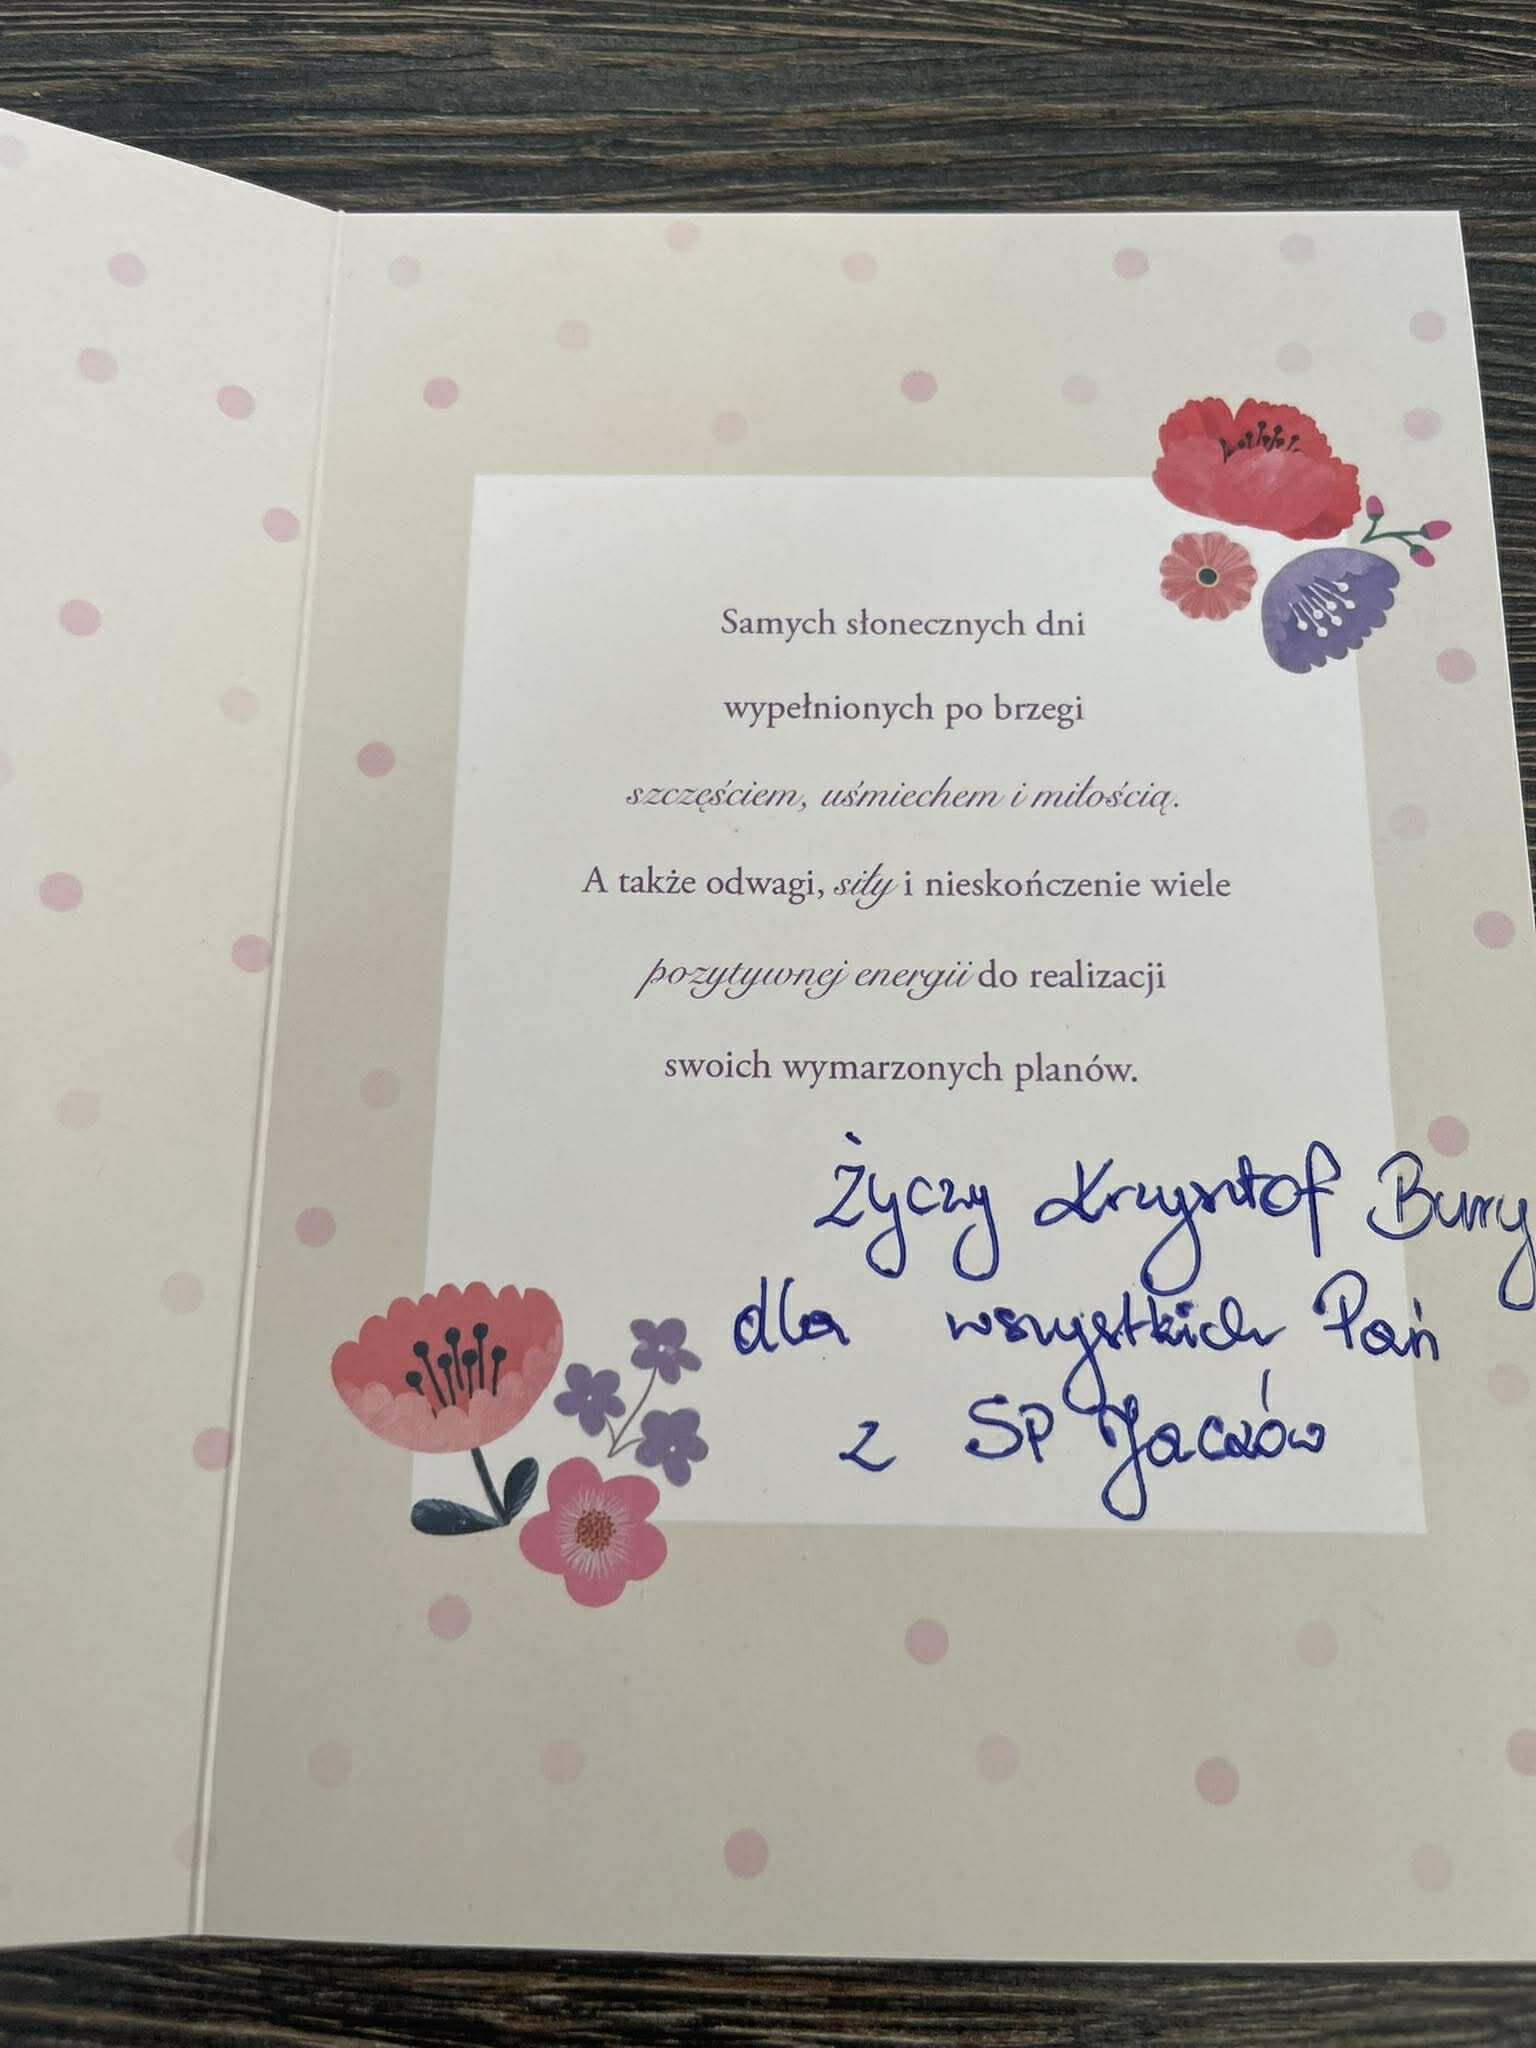 Samych słonecznych dni
wypełnionych po brzegi
szczęściem, uśmiechem i miłością.
A także odwagi, siły i nieskończenie wiele
pozytywnej energii do realizacji
swoich wymarzonych planów.
Życzy Krzysztof
dla wszystkich Pań
z SP Jaczów